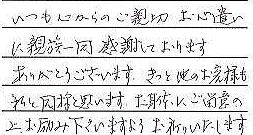 いつも心からのご親切 お心遣い
に親族一同感謝しております
ありがとうございます。きっと他のお客様も
私と同様と思います。お身体にご留意の
上お励み下さいますようお祈りいたします